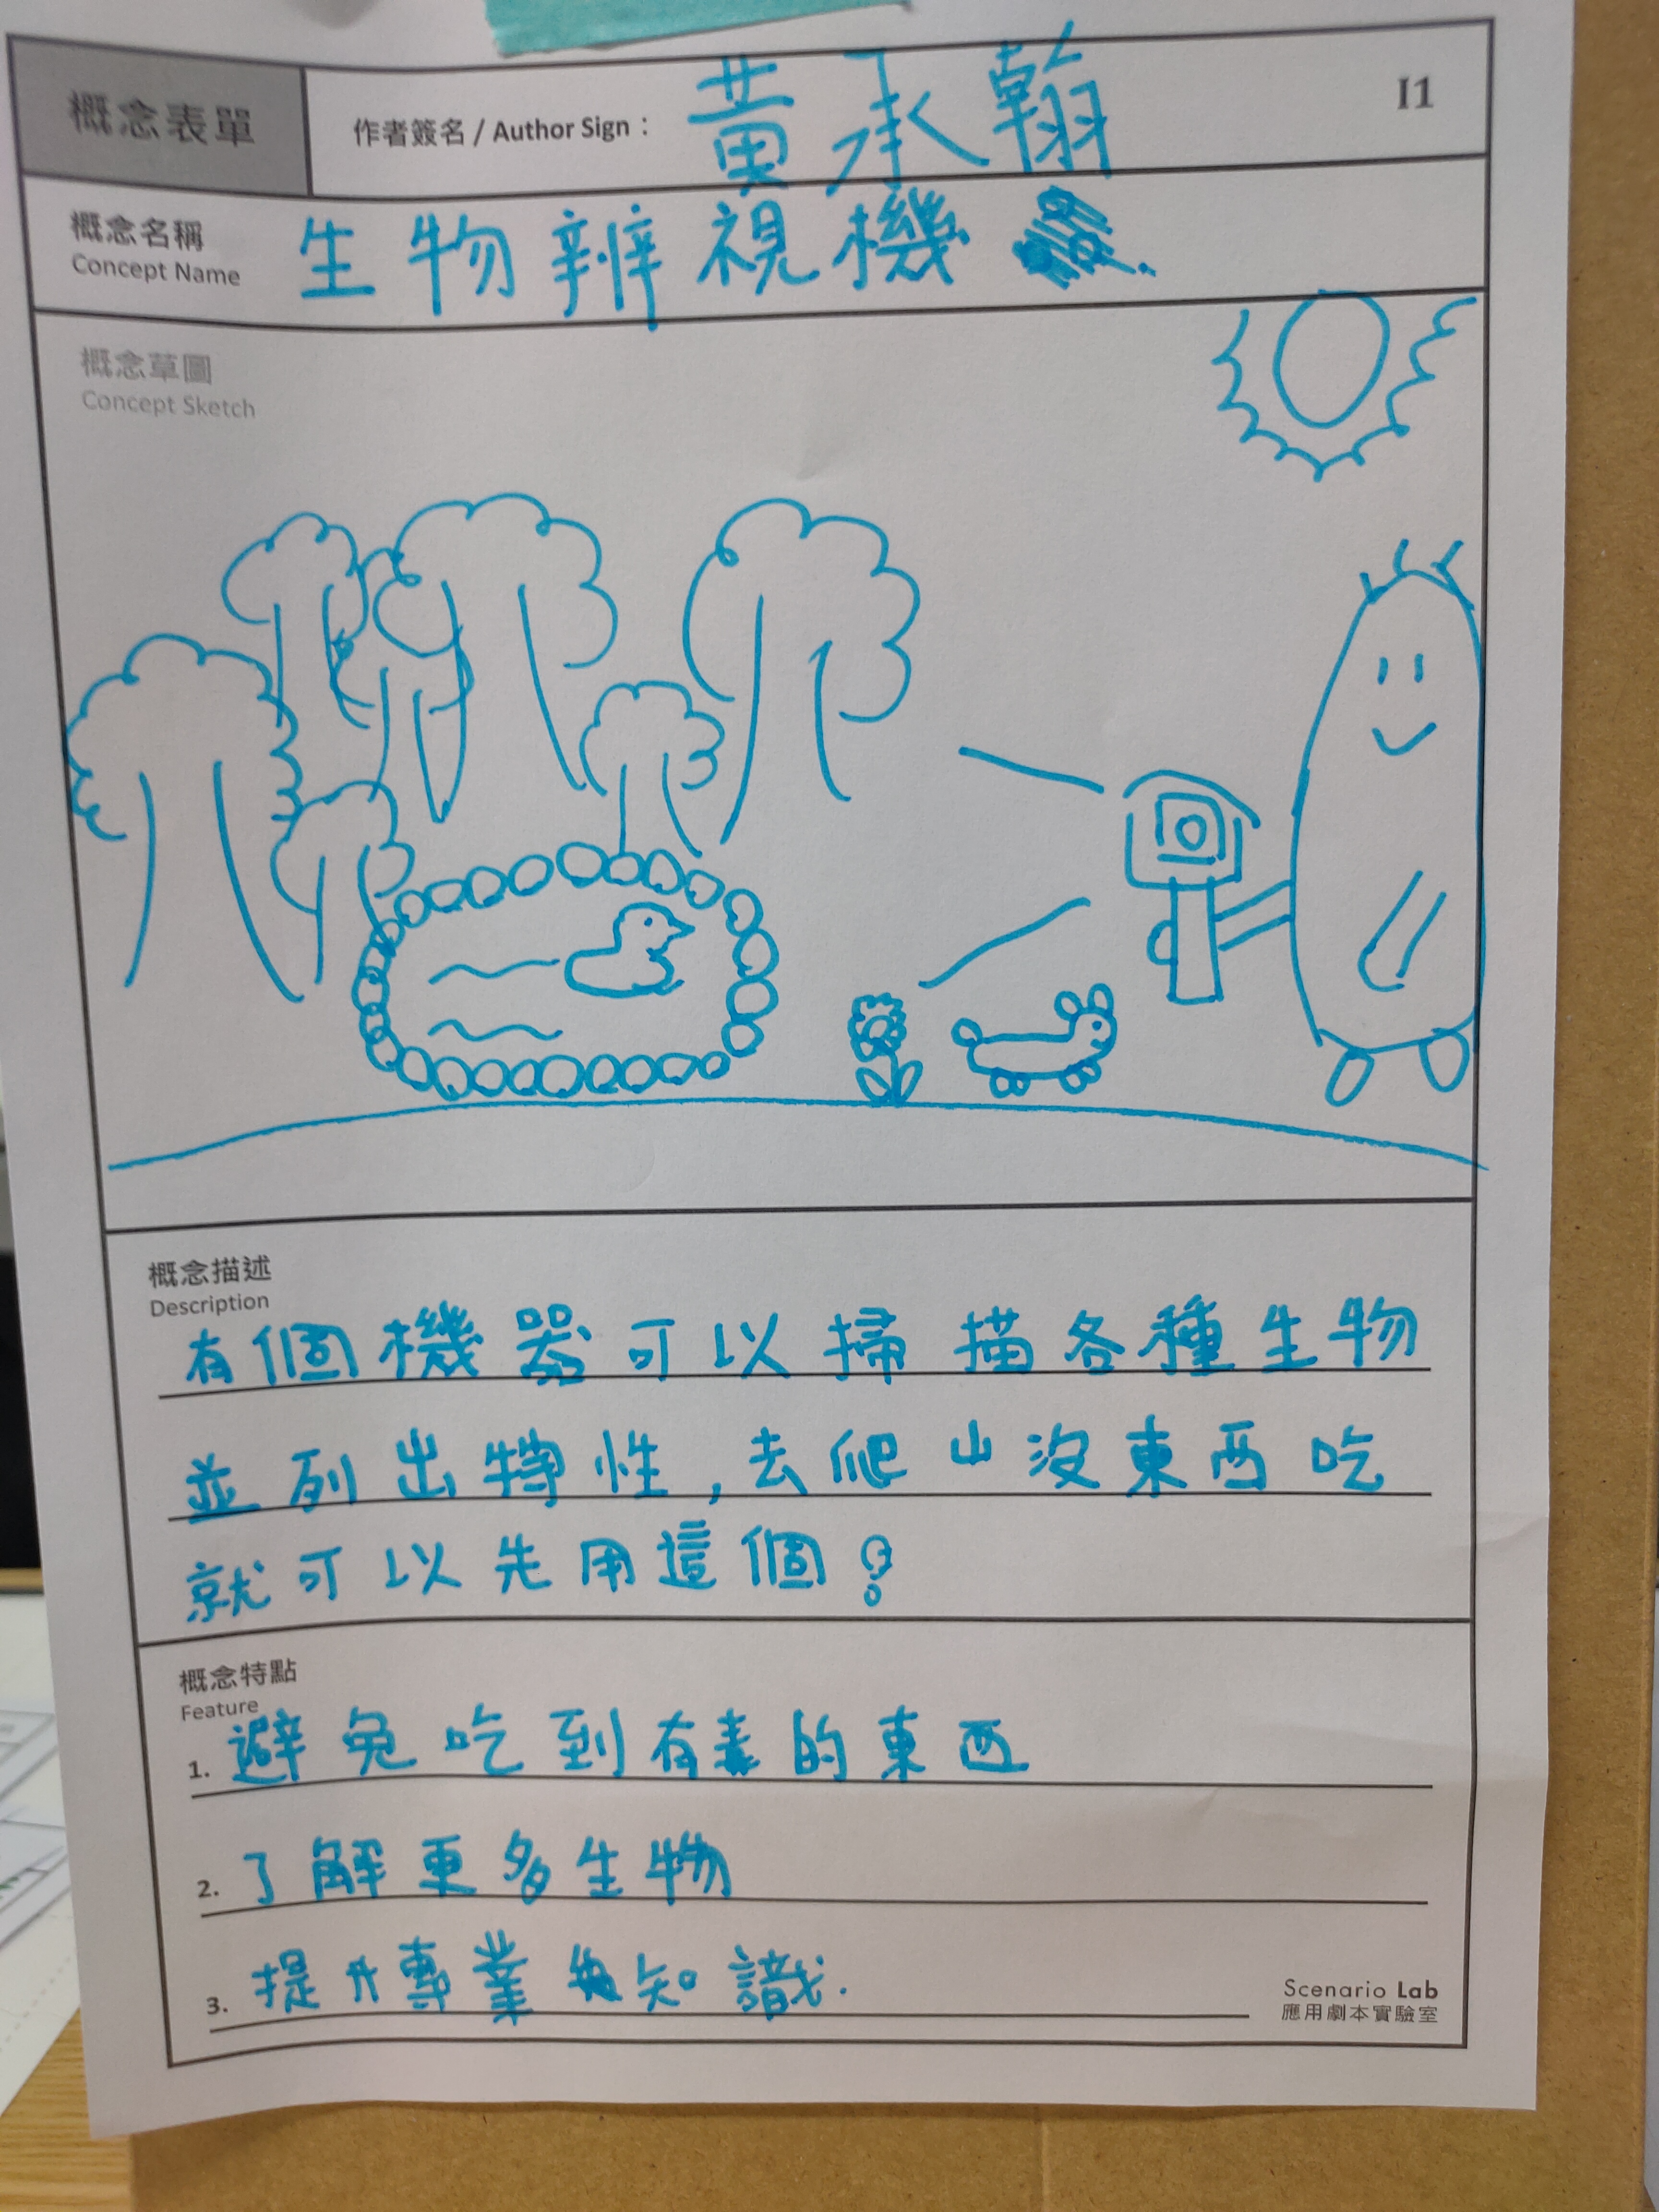 概念表單
作者簽名 / Author Sign：黃承翰
I1
概念名稱
Concept Name
生物辨視機
概念草圖
Concept Sketch
概念描述
Description
有個機器可以掃描各種生物
並列出特性,去爬山沒東西吃
就可以先用這個?
概念特點
Feature
1. 避免吃到有毒的東西
2. 了解更多生物
3. 提升專業知識.
Scenario Lab
應用劇本實驗室